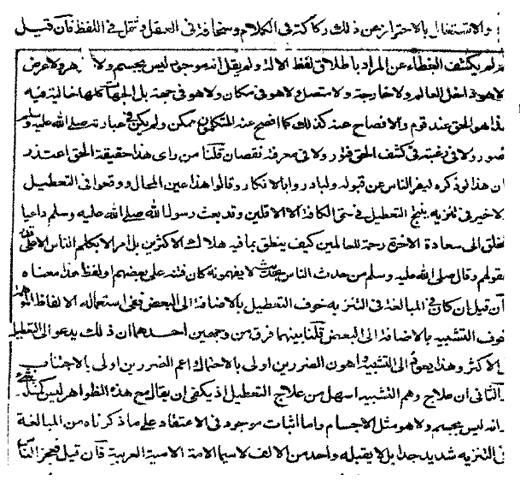 والاشتغال بالاحتراز عن ذلك ركاكة في الكلام وسخافة في العقل وثقل في اللفظ فان قيل
لم يكشف الغطاء عن المراد باطلاق لفظ الاله ولم يقل انه موجود ليس بجسم ولا جوهر ولا عرض
لا هو داخل العالم ولا خارجه ولا متصل ولا هو في مكان ولا هو في جهة بل الجهات كلها خالية عنه
هذا هو الحق عند قوم والافصاح عنه كذلك كما افصح عنه المتكلمون ممكن ولم يكن في عبارته صلى الله عليه وسلم
قصور ولا في رغبته في كشف الحق فتور ولا في معرفته نقصان قلنا من راى هذا حقيقة الحق اعتذر
ان هذا لو ذكره لنفر الناس عن قبوله ولبادروا بالانكار وقالوا هذا عين المحال ووقعوا في التعطيل
لا خير في تنزيه ينتج التعطيل في حق الكافة الا الاقلين وقد بعث رسول الله صلى الله عليه وسلم داعيا
للخلق الى سعادة الاخرة رحمة للعالمين كيف ينطق بما فيه هلاك الاكثرين بل امر الا يكلم الناس الا على قدر
عقولهم وقال صلى الله عليه وسلم من حدث الناس بحديث لا يفهمونه كان فتنة على بعضهم او لفظ هذا معناه
فان قيل ان كان في المبالغة في التنزيه خوف التعطيل بالاضافة الى البعض ففي استعماله الالفاظ
خوف التشبيه بالاضافة الى البعض قلنا بينهما فرق من وجهين احدهما ان ذلك يدعو الى التعطيل
الاكثر وهذا يدعو الى التشبيه واهون الضررين اولى بالاحتمال واعم الضررين اولى بالاجتناب
الثاني ان علاج وهم التشبيه اسهل من علاج التعطيل اذ يكفي ان يقال مع هذه الظواهر ليس كمثله شيء
وانه ليس بجسم ولا هو مثل الاجسام واما اثبات موجود في الاعتقاد على ما ذكرناه من المبالغة
في التنزيه شديد جدا بل لا يقبله واحد من الالف لا سيما الامة الامية العربية فان قيل فعجز الناس